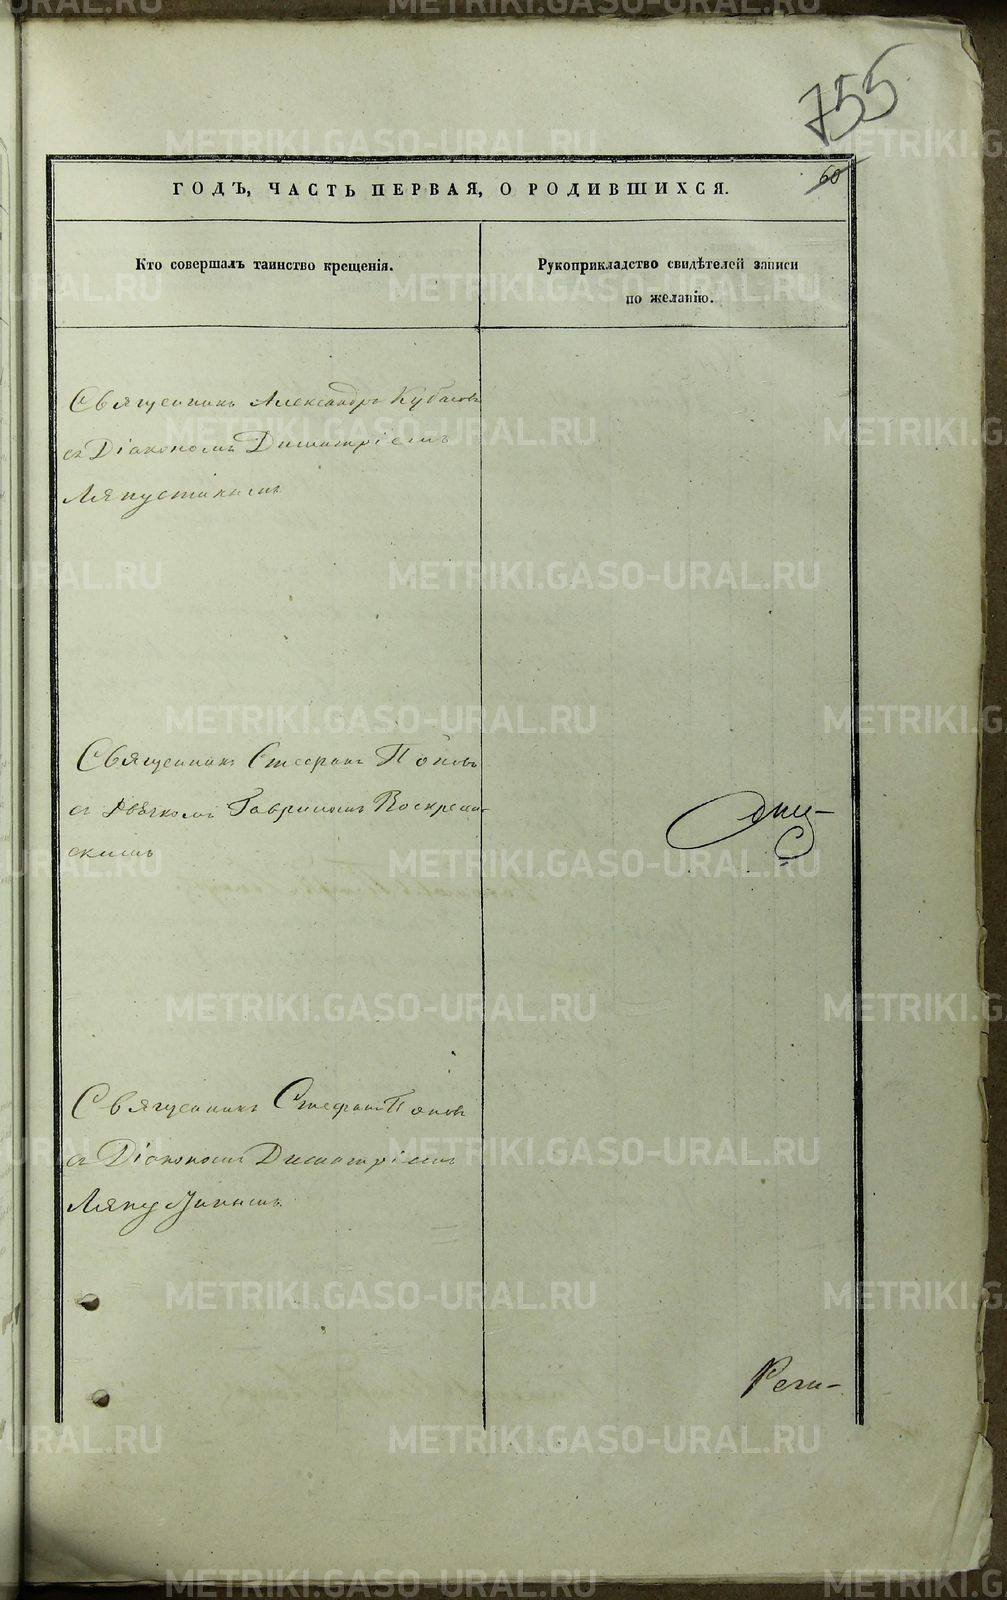 755
60
ГОДЪ, ЧАСТЬ ПЕРВАЯ, О РОДИВШИХСЯ.
Кто совершалъ таинство крещенія.
Рукоприкладство свидѣтелей записи
по желанію.
Священникъ Александръ Кубасовъ
съ Діакономъ Димитріемъ
Ляпустинымъ
Священникъ Стефанъ Поповъ
съ Дьячкомъ Гавриломъ Воскресен-
скимъ
Священникъ Стефанъ Поповъ
съ Діакономъ Димитріемъ
Ляпустинымъ
METRIKI.GASO-URAL.RU